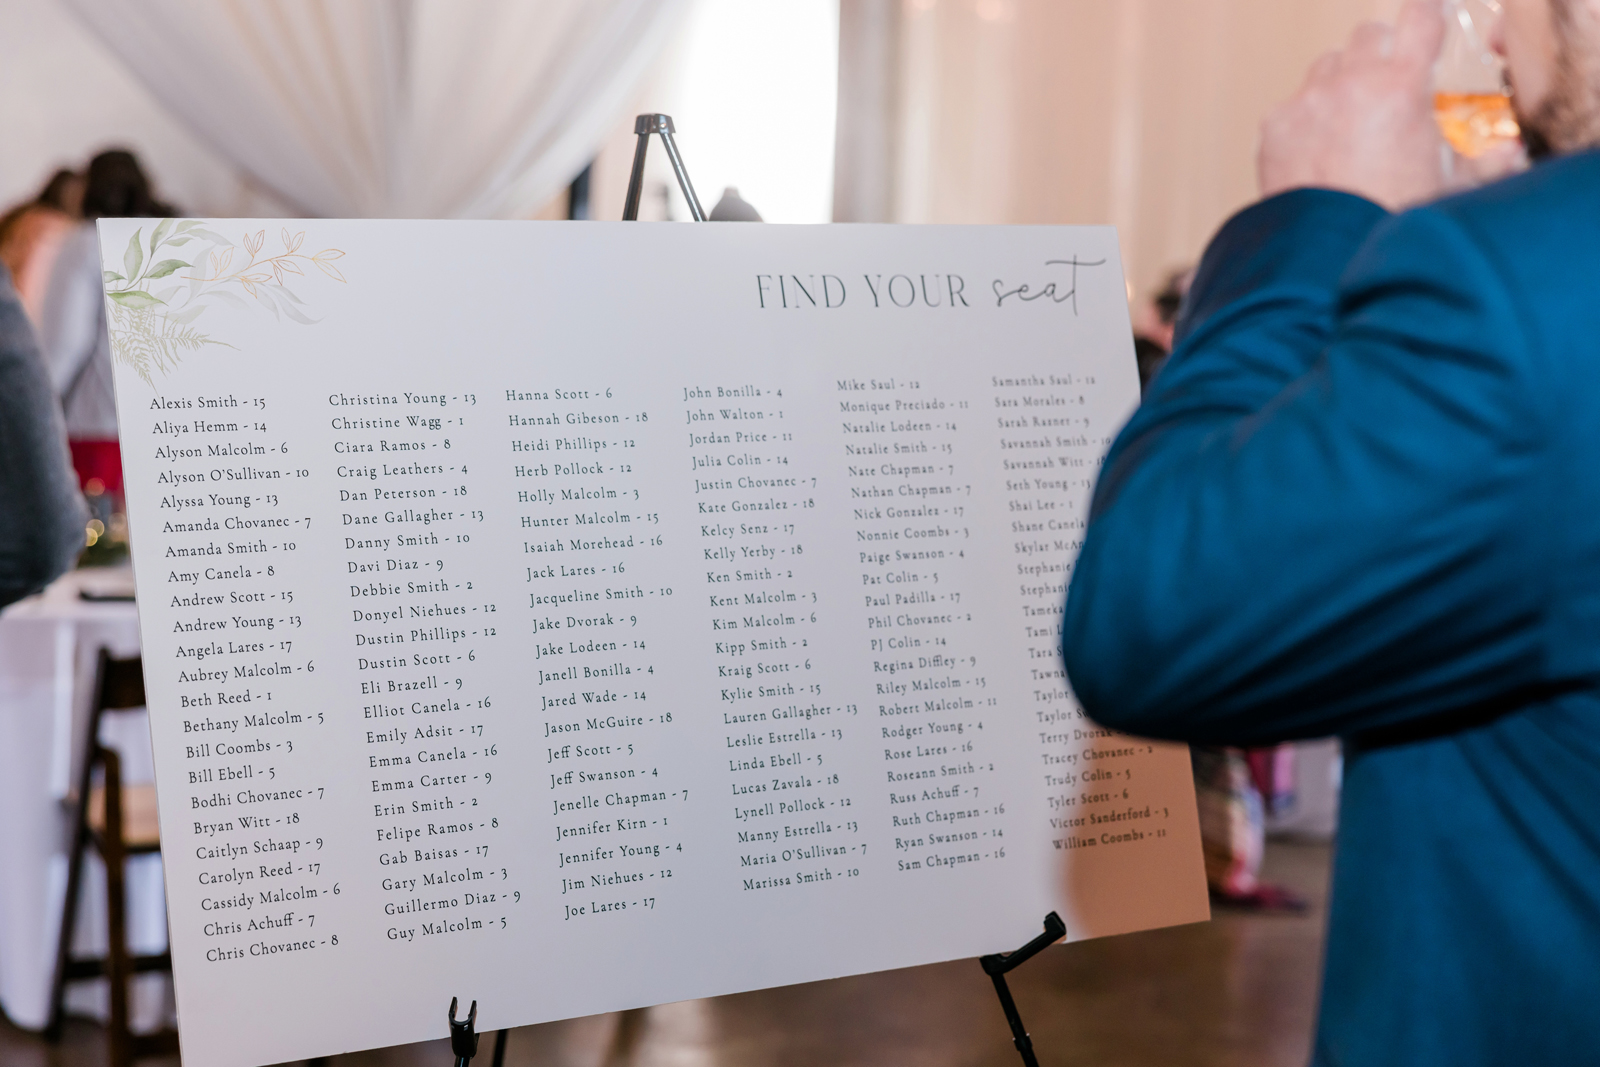 FIND YOUR seat
Alexis Smith - 15
Aliya Hemm - 14
Alyson Malcolm - 6
Alyson O'Sullivan - 10
Alyssa Young - 13
Amanda Chovanec - 7
Amanda Smith - 10
Amy Canela - 8
Andrew Scott - 15
Andrew Young - 13
Angela Lares - 17
Aubrey Malcolm - 6
Beth Reed - 1
Bethany Malcolm - 5
Bill Coombs - 3
Bill Ebell - 5
Bodhi Chovanec - 7
Bryan Witt - 18
Caitlyn Schaap - 9
Carolyn Reed - 17
Cassidy Malcolm - 6
Chris Achuff - 7
Chris Chovanec - 8
Christina Young - 13
Christine Wagg - 1
Ciara Ramos - 8
Craig Leathers - 4
Dan Peterson - 18
Dane Gallagher - 13
Danny Smith - 10
Davi Diaz - 9
Debbie Smith - 2
Donyel Niehues - 12
Dustin Phillips - 12
Dustin Scott - 6
Eli Brazell - 9
Elliot Canela - 16
Emily Adsit - 17
Emma Canela - 16
Emma Carter - 9
Erin Smith - 2
Felipe Ramos - 8
Gab Baisas - 17
Gary Malcolm - 3
Guillermo Diaz - 9
Guy Malcolm - 5
Hanna Scott - 6
Hannah Gibeson - 18
Heidi Phillips - 12
Herb Pollock - 12
Holly Malcolm - 3
Hunter Malcolm - 15
Isaiah Morehead - 16
Jack Lares - 16
Jacqueline Smith - 10
Jake Dvorak - 9
Jake Lodeen - 14
Janell Bonilla - 4
Jared Wade - 14
Jason McGuire - 18
Jeff Scott - 5
Jeff Swanson - 4
Jenelle Chapman - 7
Jennifer Kirn - 1
Jennifer Young - 4
Jim Niehues - 12
Joe Lares - 17
John Bonilla - 4
John Walton - 1
Jordan Price - 11
Julia Colin - 14
Justin Chovanec - 7
Kate Gonzalez - 18
Kelcy Senz - 17
Kelly Yerby - 18
Ken Smith - 2
Kent Malcolm - 3
Kim Malcolm - 6
Kipp Smith - 2
Kraig Scott - 6
Kylie Smith - 15
Lauren Gallagher - 13
Leslie Estrella - 13
Linda Ebell - 5
Lucas Zavala - 18
Lynell Pollock - 12
Manny Estrella - 13
Maria O'Sullivan - 7
Marissa Smith - 10
Mike Saul - 12
Monique Preciado - 11
Natalie Lodeen - 14
Natalie Smith - 15
Nate Chapman - 7
Nathan Chapman - 7
Nick Gonzalez - 17
Nonnie Coombs - 3
Paige Swanson - 4
Pat Colin - 5
Paul Padilla - 17
Phil Chovanec - 2
PJ Colin - 14
Regina Diffley - 9
Riley Malcolm - 15
Robert Malcolm - 11
Rodger Young - 4
Rose Lares - 16
Roseann Smith - 2
Russ Achuff - 7
Ruth Chapman - 16
Ryan Swanson - 14
Sam Chapman - 16
Samantha Saul - 12
Sara Morales - 8
Sarah Rasner - 9
Savannah Smith - 10
Savannah Witt -
Seth Young - 13
Shai Lee - 1
Shane Canela
Skylar
Stephanie
Stephanie
Tami
Tara
Taylor
Taylor
Terry Dvorak -
Tracey Chovanec - 2
Trudy Colin - 5
Tyler Scott - 6
Victor Sanderford - 3
William Coombs - 11